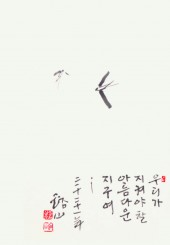 우리가
지켜야할
아름다운
지구여
二千二十一年
山